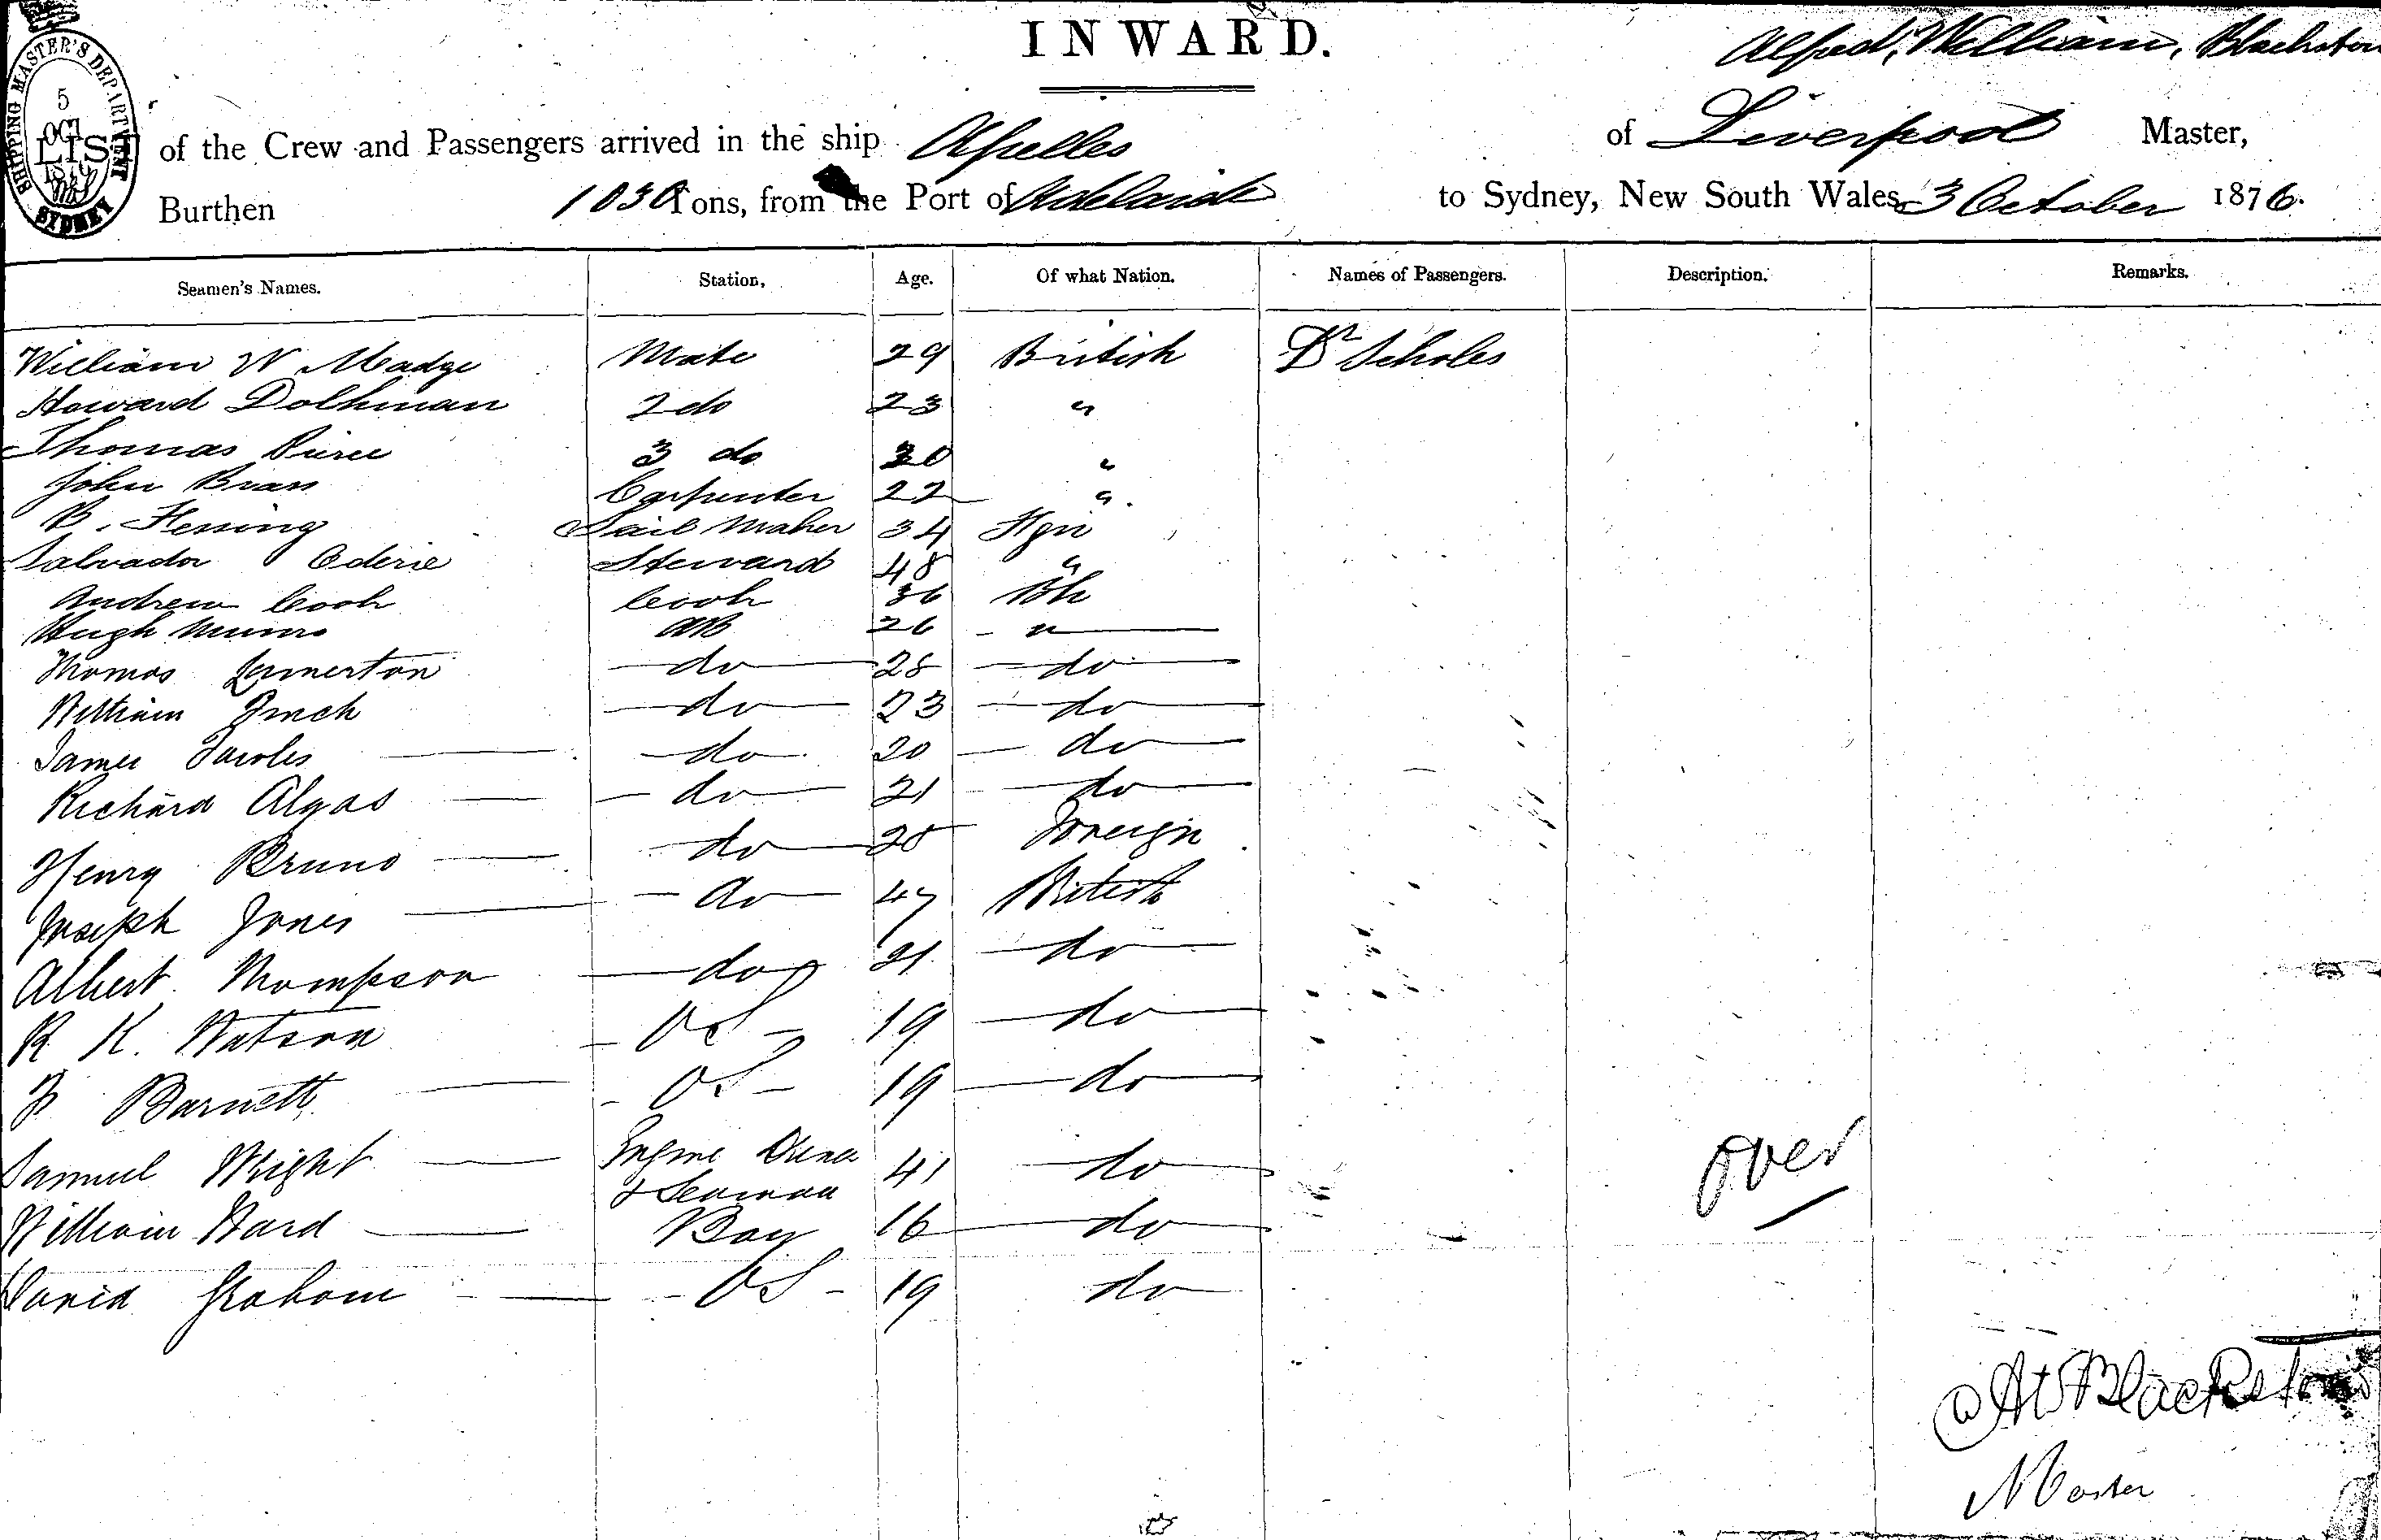 INWARD.
Alfred, William, Blackston
SHIPPING MASTER'S DEPARTMENT
5
OCT
1876
SYDNEY
LIST of the Crew and Passengers arrived in the ship Apelles of Liverpool Master,
Burthen 1030 Tons, from the Port of Adelaide to Sydney, New South Wales, 3 October 1876.
Seamen's Names. Station, Age. Of what Nation. Names of Passengers. Description. Remarks.
William W Madge Mate 29 British Dr Scholes
Howard Dolhman 2 do 23 "
Thomas Pierce 3 do 20 "
John Brass Carpenter 22 "
B. Flessing Sail Maker 34 Fgn
Salvador Oderie Steward 48 "
Andrew Cook Cook 36 Bh
Hugh Munro AB 26 "
Thomas do 28 do
William Finch do 23 do
James do 20 do
Richard Algas do 21 do
Henry Bruno do 28 Foreign
Joseph Jones do 47 British
Albert Thompson do 21 do
R K. Watson OS 19 do
F Barnett OS 19 do
Samuel Wright Engine Driver 41 do
& Seaman
William Ward Boy 16 do
David Graham OS 19 do
over
AW Blackstone
Master